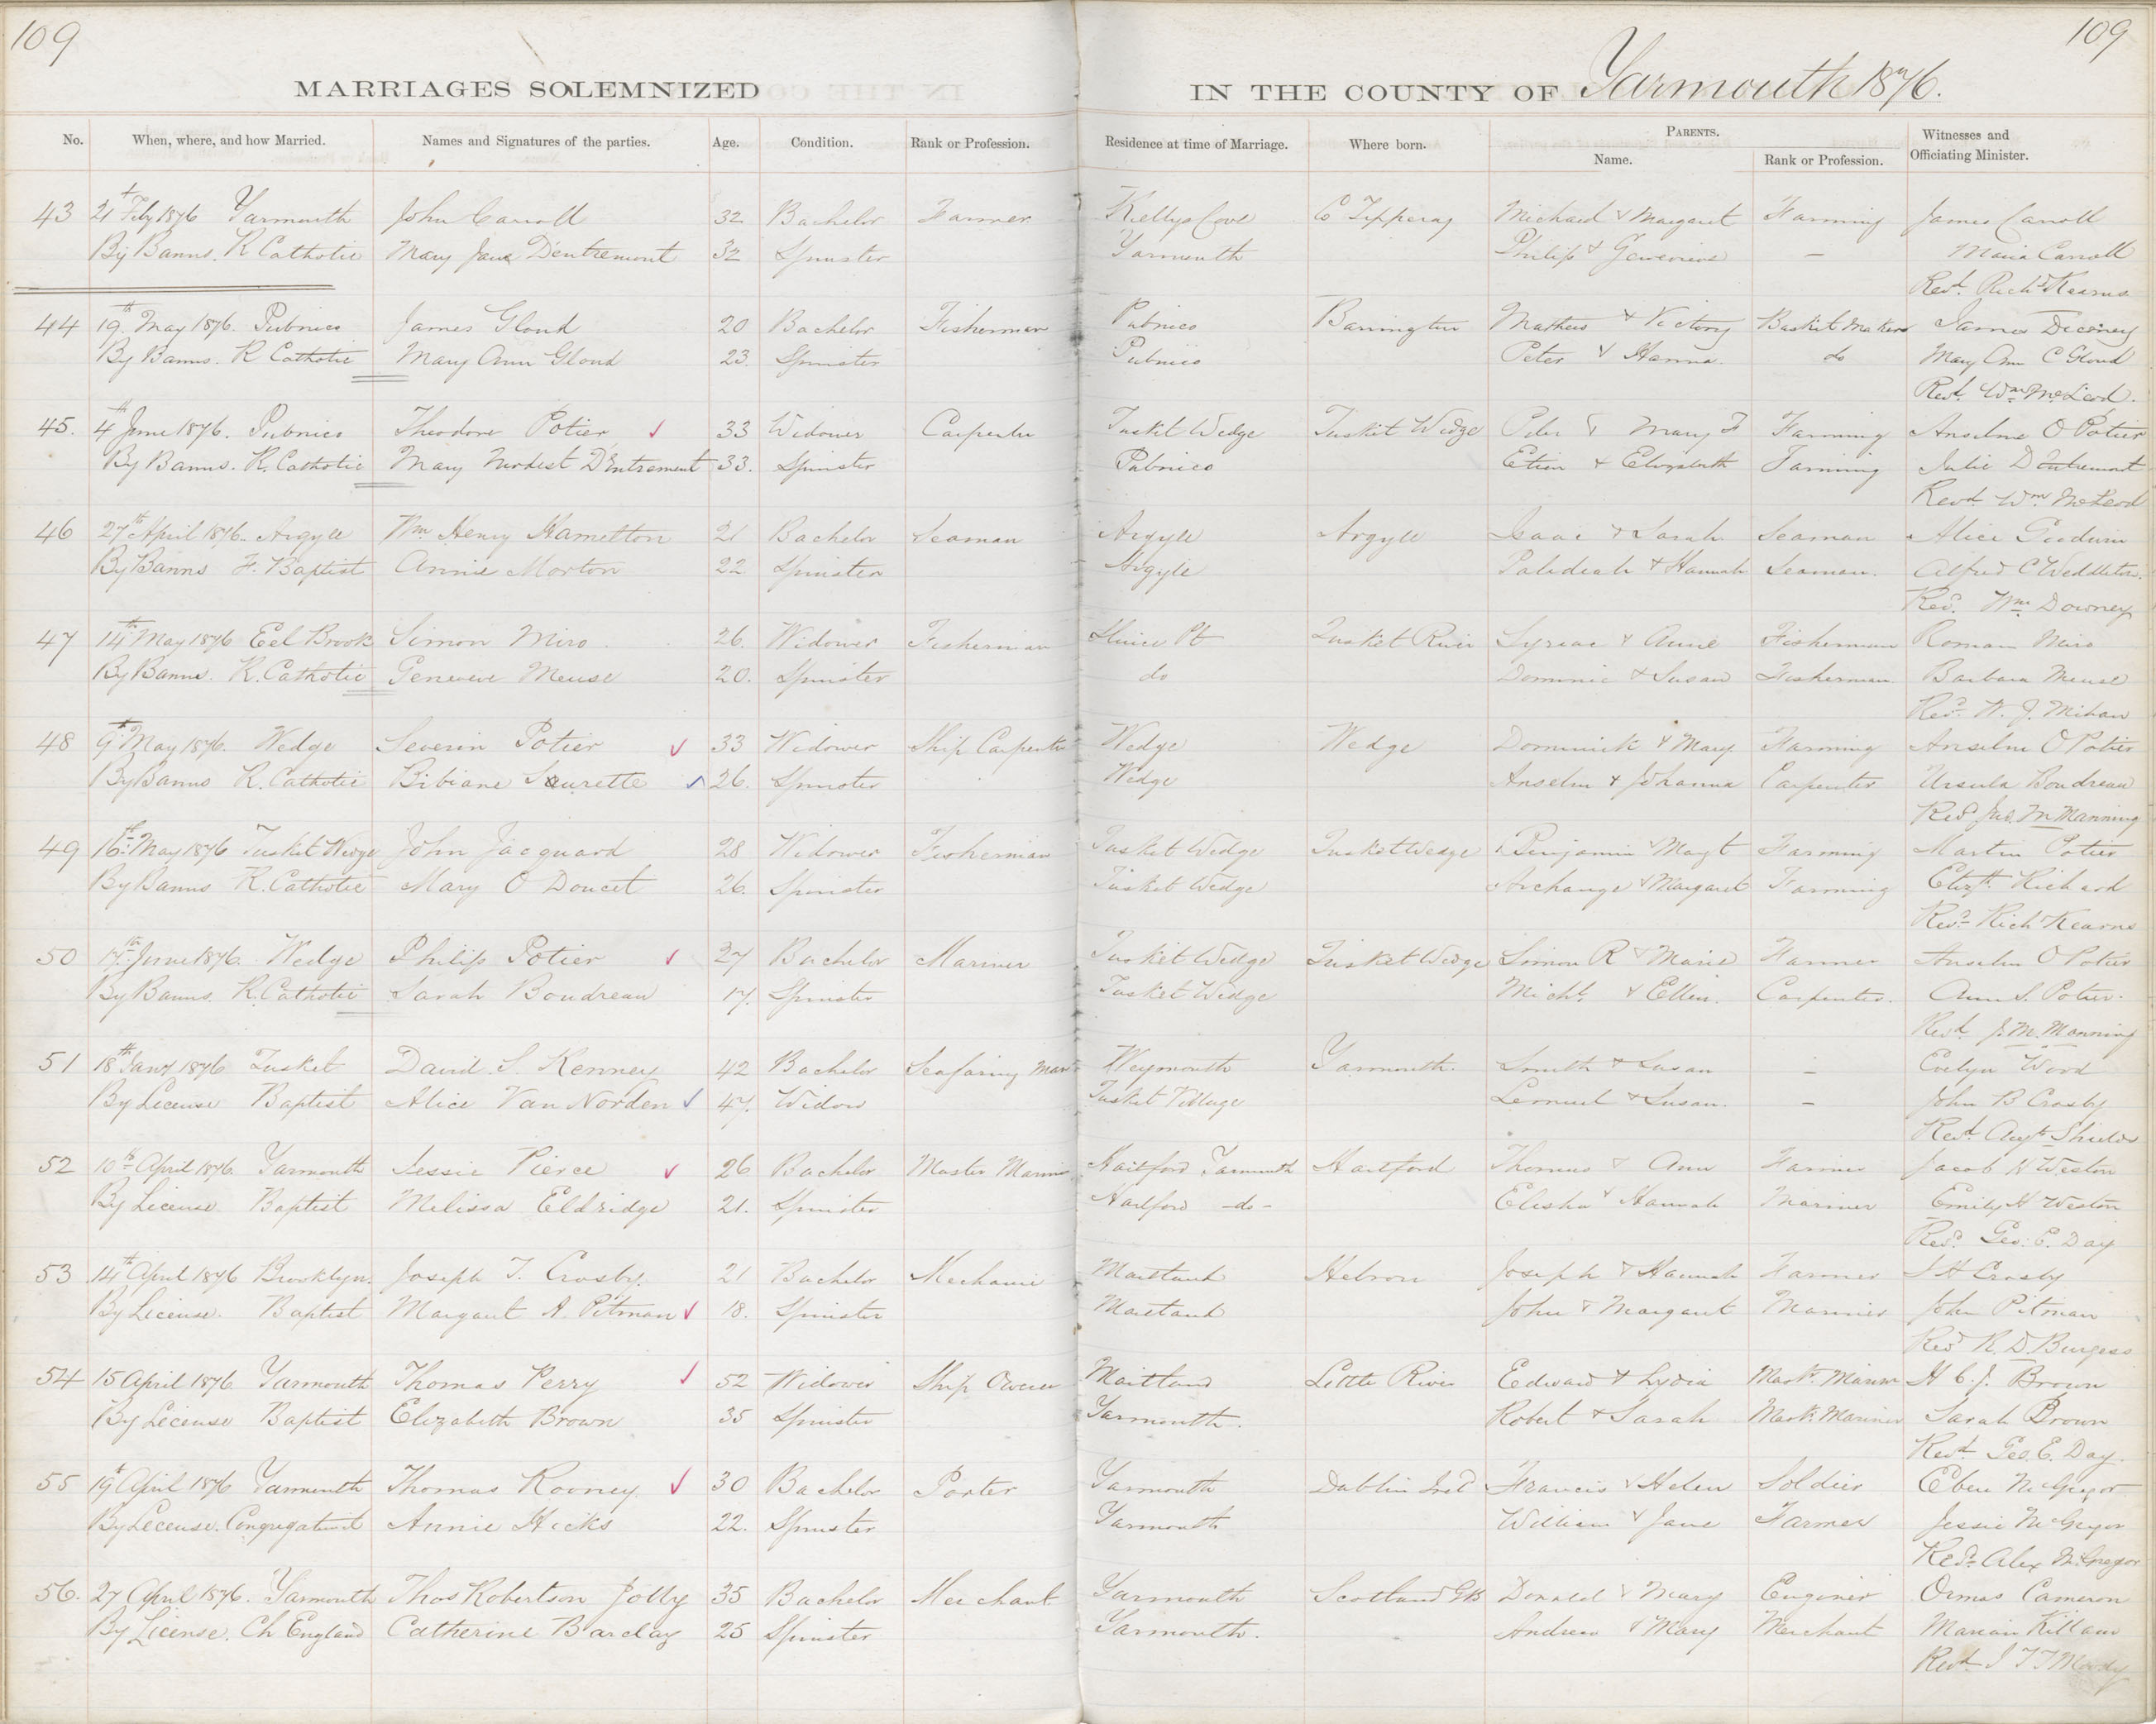 109
109
MARRIAGES SOLEMNIZED
IN THE COUNTY OF Yarmouth 1876.
No. When, where, and how Married. Names and Signatures of the parties. Age. Condition. Rank or Profession. Residence at time of Marriage. Where born. PARENTS. Name. Rank or Profession. Witnesses and Officiating Minister.
43 21st Feby 1876 Yarmouth John Carroll 32 Bachelor Farmer Kellys Cove Co Tipperay Michael & Margaret Farming James Carroll
By Banns. R Catholic Mary Jane Dentremont 32 Spinster Yarmouth Philip & Genevieve — Maria Carroll
Revd. Richd Kearns
44 19th May 1876. Pubnico James Gloud 20 Bachelor Fisherman Pubnico Barrington Mathew & Victory Basket Makers James
By Banns. R Catholic Mary Ann Gloud 23. Spinster Pubnico Peter & Hanna do Mary Ann C Gloud
Revd. Wm McLeod.
45. 4th June 1876. Pubnico Theodore Potier 33 Widower Carpenter Tusket Wedge Tusket Wedge Peter & Mary F Farming Anselme O Potier
By Banns. R. Catholic Mary Modest D'Entremont 33. Spinster Pubnico Etien & Elizabeth Farming Julie Dentremont
Revd Wm McLeod
46 27th April 1876. Argyle Wm Henry Hamelton 21 Bachelor Seaman Argyle Argyle Isaac & Sarah Seaman Alice Goodwin
By Banns F. Baptist Annie Morton 22 Spinster Argyle & Hannah Seaman. Alfred C Weddleton.
Revd. Wm Downey
47 14th May 1876 Eel Brook Simon Miro. 26. Widower Fisherman Sluice Pt Tusket River Syriac & Anne Fisherman Roman Miro
By Banns. R. Catholic Genevieve Meuse 20. Spinster do Dominic & Susan Fisherman Barbara Meuse
Revd. W. J. Mihan
48 9th May 1876. Wedge Severin Potier 33 Widower Ship Carpenter Wedge Wedge Dominick & Mary Farming Anselm O Potier
By Banns R. Catholic Bibiane Surette 26. Spinster Wedge Anselm & Johanna Carpenter Ursula Boudreau
Revd Jno. M Manning
49 16th May 1876 Tusket Wedge John Jacquard 28 Widower Fisherman Tusket Wedge Tusket Wedge Benjamin & Magt Farming Martin Potier
By Banns R. Catholic Mary O Doucet 26. Spinster Tusket Wedge Archange & Margaret Farming Elizth Richard
Revd. Richd Kearns
50 17th June 1876. Wedge Philip Potier 27 Bachelor Mariner Tusket Wedge Tusket Wedge Simon R & Marie Farmer Anselm O Potier
By Banns. R. Catholic Sarah Boudreau 17. Spinster Tusket Wedge Michl. & Ellen. Carpenter. Ann S. Potier.
Revd J. M. Manning
51 18th Jany 1876 Tusket David. S. Kenney 42 Bachelor Seafaring Man Weymouth Yarmouth. Smith & Susan — Evelyn Wood
By License Baptist Alice Van Norden 47. Widow Tusket Village Lemuel & Susan. — John B Crosby
Revd. Augts Shields
52 10th April 1876. Yarmouth Jessie Pierce 26 Bachelor Master Marin Hartford Yarmouth Hartford Thomas & Ann Farmer Jacob H Weston
By License Baptist Melissa Eldridge 21. Spinster Hartford -do- Elisha & Hannah Mariner Emily H Weston
Revd. Geo. E. Day
53 14th April 1876 Brooklyn. Joseph T. Crosby. 21 Bachelor Mechanic Maitland Hebron Joseph & Hannah Farmer S H Crosby
By License. Baptist Margaret A. Pitman 18. Spinster Maitland John & Margaret Mariner John Pitman
Revd R. D. Burgess
54 15 April 1876 Yarmouth Thomas Perry 52 Widower Ship Owner Maitland Little River Edward & Lydia Mastr. Mariner H C. J. Brown
By License Baptist Elizabeth Brown 35 Spinster Yarmouth. Robert & Sarah Mastr. Mariner Sarah Brown
Revd. Geo. E. Day.
55 19th April 1876 Yarmouth Thomas Rooney. 30 Bachelor Porter Yarmouth Dublin Ireld Francis & Helen Soldier Eben McGregor
By License. Congregational Annie Hicks 22. Spinster Yarmouth William & Jane Farmer Jessie McGregor
Revd. Alex McGregor
56. 27 April 1876. Yarmouth Thos Robertson Jolly 35 Bachelor Merchant Yarmouth Scotland GB Donald & Mary Enginer Ormas Cameron
By License. Ch England Catherine Barclay 25 Spinster Yarmouth. Andrew & Mary Merchant Marian Killam
Revd. J T T Moody